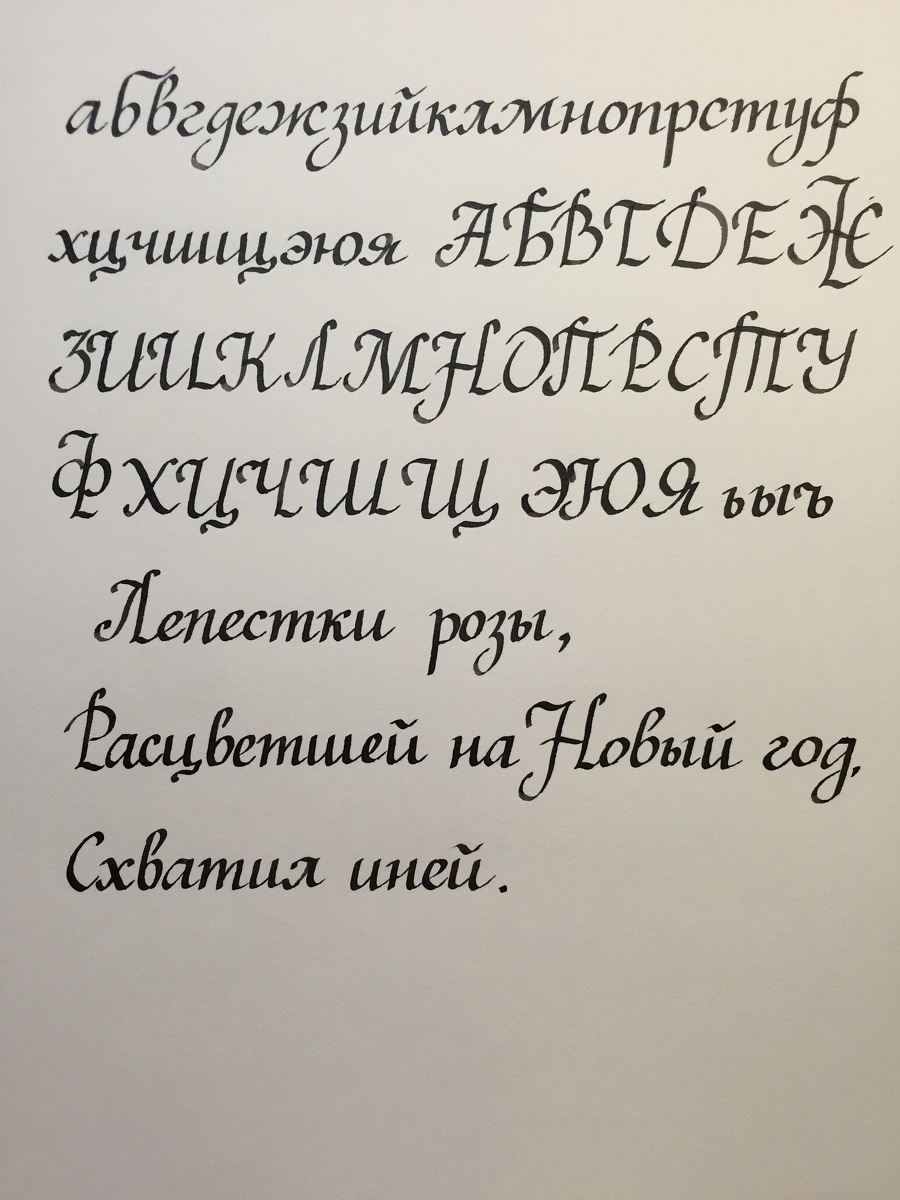 абвгдежзийклмнопрстуф
хцчшщэюя АБВГДЕЖ
ЗИИКЛМНОПРСТУ
ФХЦЧШЩ ЭЮЯ ьыъ
Лепестки розы,
Расцветшей на Новый год,
Схватил иней.